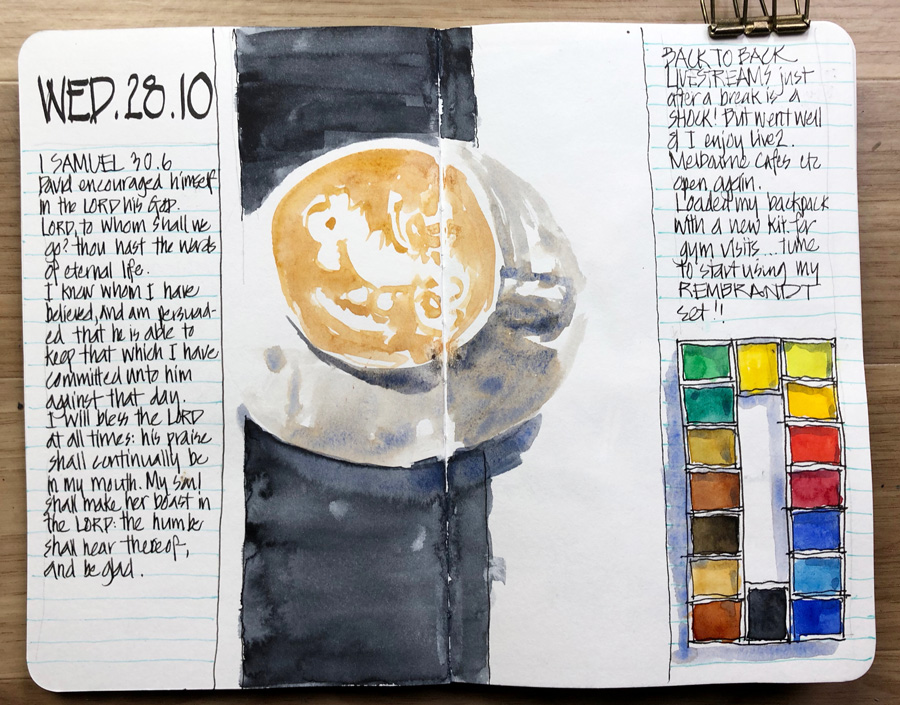 WED.28.10
1 SAMUEL 30.6
David encouraged himself
in the LORD his GOD.
LORD, to whom shall we
go? thou hast the words
of eternal life.
I know whom I have
believed, and am persuad-
ed that he is able to
keep that which I have
committed unto him
against that day.
I will bless the LORD
at all times: his praise
shall continually be
in my mouth. My soul
shall make her boast in
the LORD: the humble
shall hear thereof,
and be glad.
BACK TO BACK
LIVESTREAMS just
after a break is a
SHOCK! But went well
& I enjoy live2.
Melbourne cafes etc
open again.
Loaded my backpack
with a new kit for
gym visits... time
to start using my
REMBRANDT
set!!